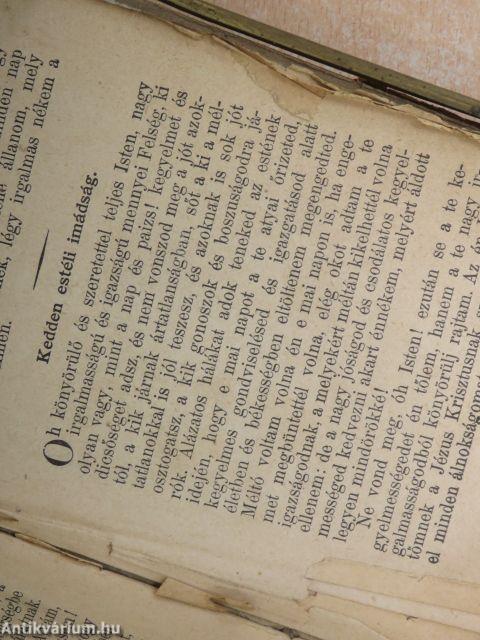 minden nap
állanom, mely
légy irgalmas nékem a
Kedden estéli imádság.
Oh könyörülő és szeretettel teljes Isten, nagy
irgalmasságú és igazságú mennyei Felség, ki
olyan vagy, mint a nap és paizs! kegyelmet és
dicsőséget adsz, és nem vonszod meg a jót azok-
tól, a kik járnak ártatlanságban, sőt a ki a mél-
tatlanokkal is jól teszesz, és azoknak is sok jót
osztogatsz, a kik gonoszok és bosznuságodra já-
rók. Alázatos hálákat adok teneked az estének
idején hogy e mai napot a te atyai őrizeted,
kegyelmes gondviselésed és igazgatásod alatt
életben és békességben eltöltenem megengedted.
Méltó voltam volna én e mai napon is, ha enge-
met megbüntettél volna, elég okot adtam a te
igazságodnak, a melyekért méltán kikelhettél volna
ellenem: de a nagy jóságod és csodálatos kegyel-
mességed kedvezni akart énnékem, melyért áldott
legyen mindörökké!
Ne vond meg, óh Isten! ezután se a te ke-
gyelmességedet én tőlem, hanem a te nagy ir-
galmasságodból könyörülj rajtam. Az én
tömnek a Jézus Krisztusnak
el minden álnokságomat
Antikvárium.hu